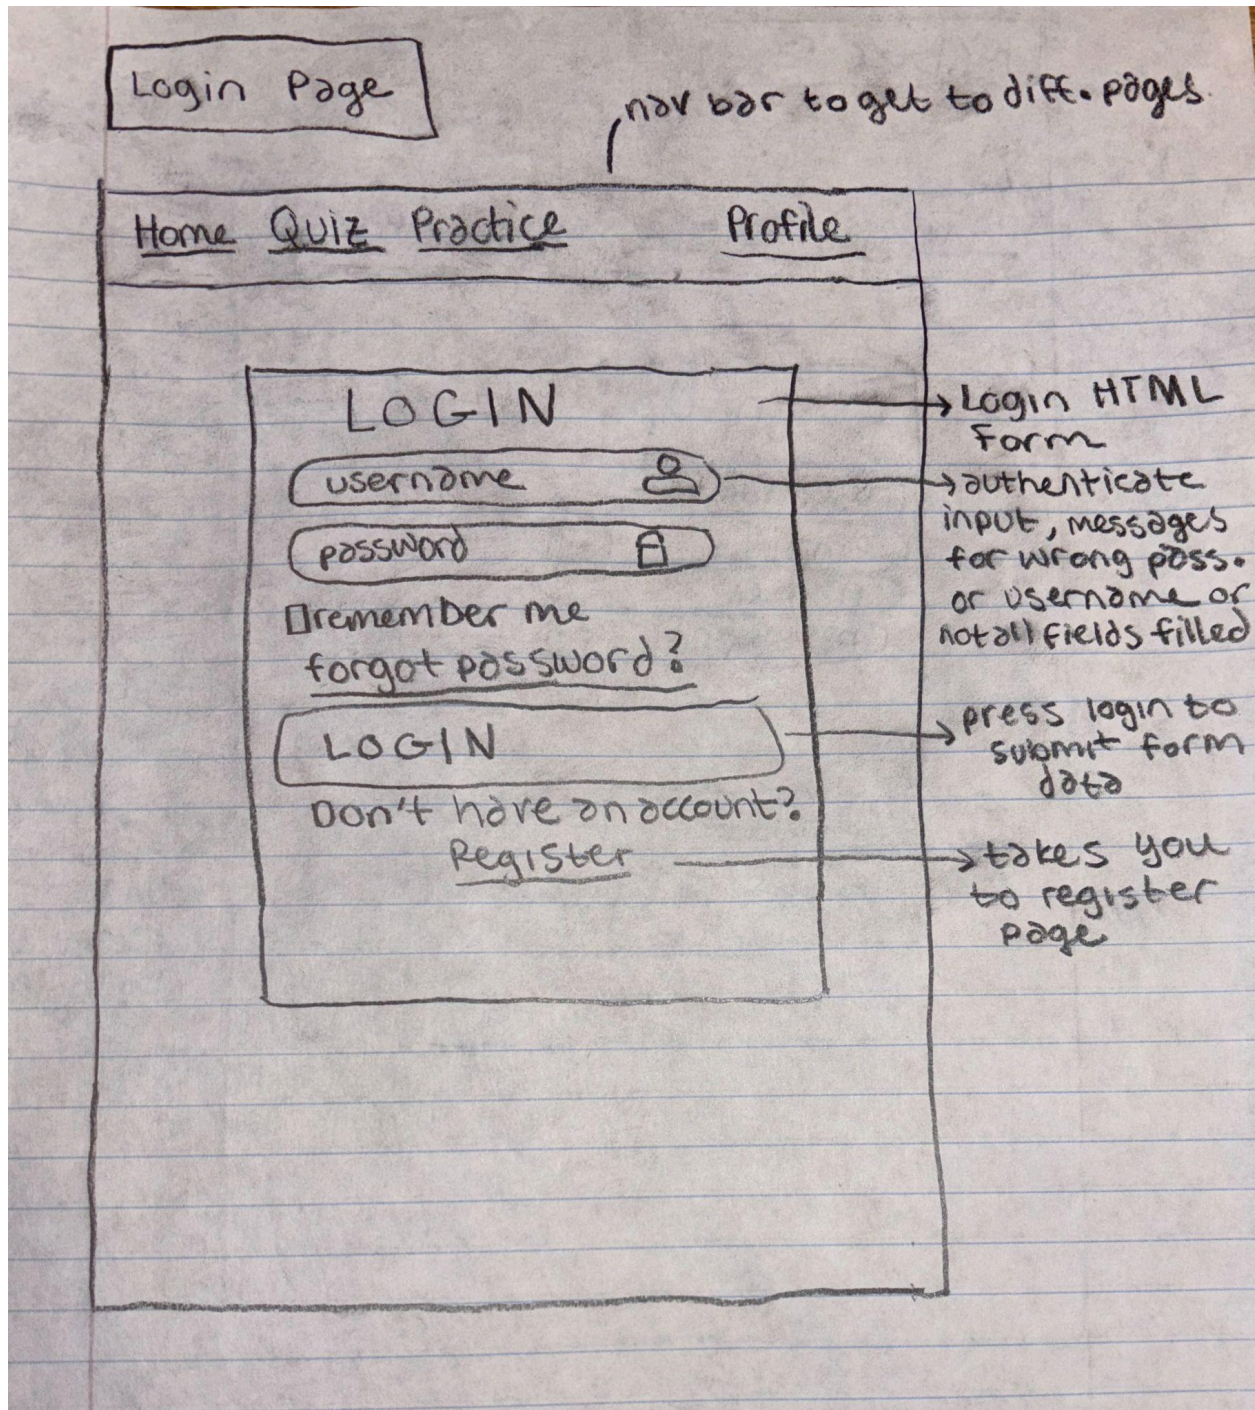 Login Page
nav bar to get to diff. pages.
Home Quiz Practice Profile
LOGIN
username
password
remember me
forgot password?
LOGIN
Don't have an account?
Register
Login HTML
form
authenticate
input, messages
for wrong pass.
or username or
not all fields filled
press login to
submit form
data
takes you
to register
page